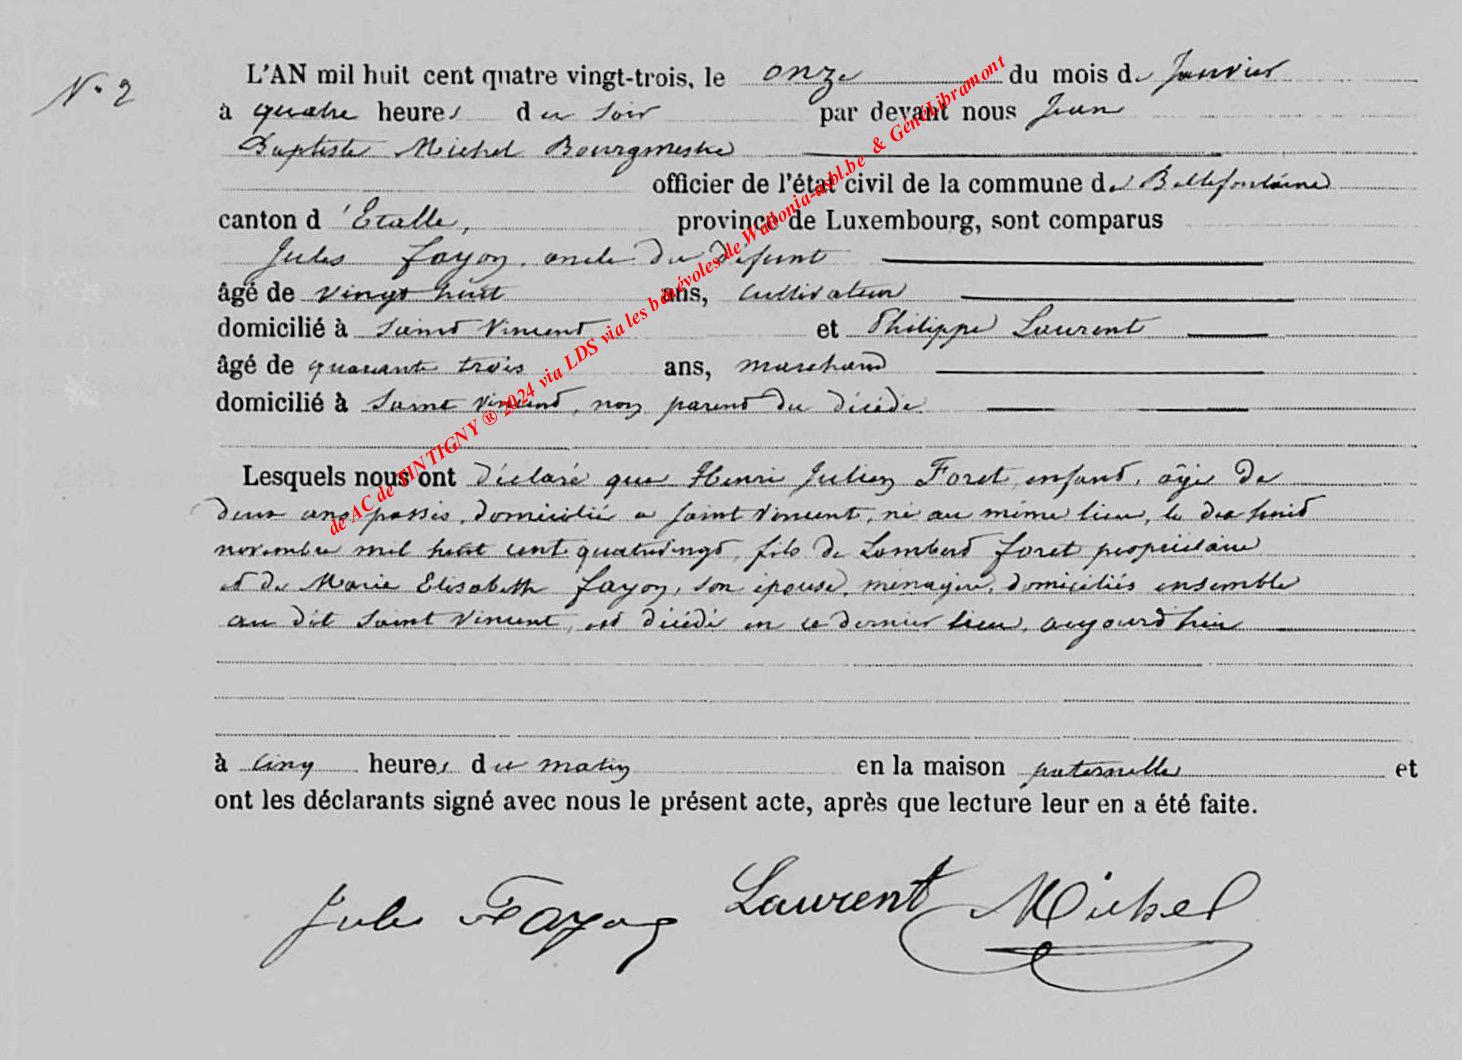 N° 2
L'AN mil huit cent quatre vingt-trois, le onze du mois de Janvier
à quatre heures du soir par devant nous Jean
Baptiste Michel Bourgmestre
officier de l'état civil de la commune de Bellefontaine
canton d'Etalle, province de Luxembourg, sont comparus
Jules Fayon, oncle du défunt
âgé de vingt huit ans, cultivateur
domicilié à Saint Vincent et Philippe Laurent
âgé de quarante trois ans, marchand
domicilié à Saint Vincent, non parent du décédé
Lesquels nous ont déclaré que Henri Julien Foret, enfant, âgé de
deux ans passés, domicilié a Saint Vincent, né au même lieu, le dix huit
novembre mil huit cent quatrevingt, fils de Lambert Foret propriétaire
et de Marie Elisabeth Fayon, son épouse, ménagère, domiciliés ensemble
au dit Saint Vincent, est décédé en ce dernier lieu, aujourd'hui
à cinq heures du matin en la maison paternelle et
ont les déclarants signé avec nous le présent acte, après que lecture leur en a été faite.
Jules Fayon Laurent Michel
de AC de TINTIGNY ® 2024 via LDS via les bénévoles de Wallonia-asbl.be & GenéLibramont